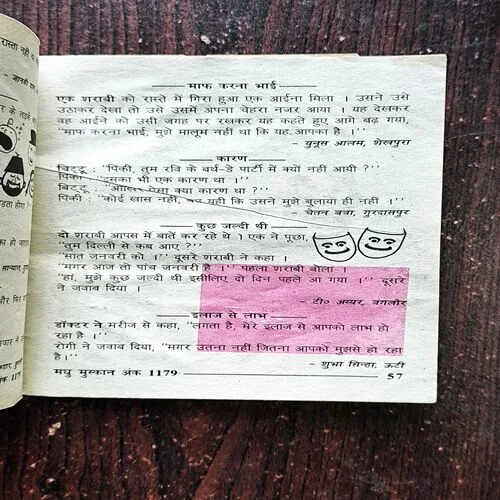 रास्ता नहीं था
माफ करना भाई
एक शराबी को रास्ते में गिरा हुआ एक आईना मिला । उसने उसे
उठाकर देखा तो उसे उसमें अपना चेहरा नजर आया । यह देखकर
वह आईने को उसी जगह पर रखकर यह कहते हुए आगे बढ़ गया,
"माफ करना भाई, मुझे मालूम नहीं था कि यह आपका है ।"
- यूनुस आलम, शेखपुरा
कारण
बिट्टू : "पिंकी, तुम रवि के बर्थ-डे पार्टी में क्यों नहीं आयी ?"
पिंकी : "उसका भी एक कारण था ।"
बिट्टू : "आखिर ऐसा क्या कारण था ?"
पिंकी : "कोई खास नहीं, बस यही कि उसने मुझे बुलाया ही नहीं ।"
- चेतन बत्रा, गुरदासपुर
कुछ जल्दी थी
दो शराबी आपस में बातें कर रहे थे । एक ने पूछा,
"तुम दिल्ली से कब आए ?"
"सात जनवरी को ।" दूसरे शराबी ने कहा ।
"मगर आज तो पांच जनवरी है ।" पहला शराबी बोला ।
"हां, मुझे कुछ जल्दी थी इसीलिए दो दिन पहले आ गया ।" दूसरे
ने जवाब दिया ।
- टी० अय्यर, बंगलौर
इलाज से लाभ
डॉक्टर ने मरीज से कहा, "लगता है, मेरे इलाज से आपको लाभ हो
रहा है ।"
रोगी ने जवाब दिया, "मगर उतना नहीं जितना आपको मुझसे हो रहा
है ।"
- शुभा सिन्हा, ऊटी
मधु मुस्कान अंक 1179
57